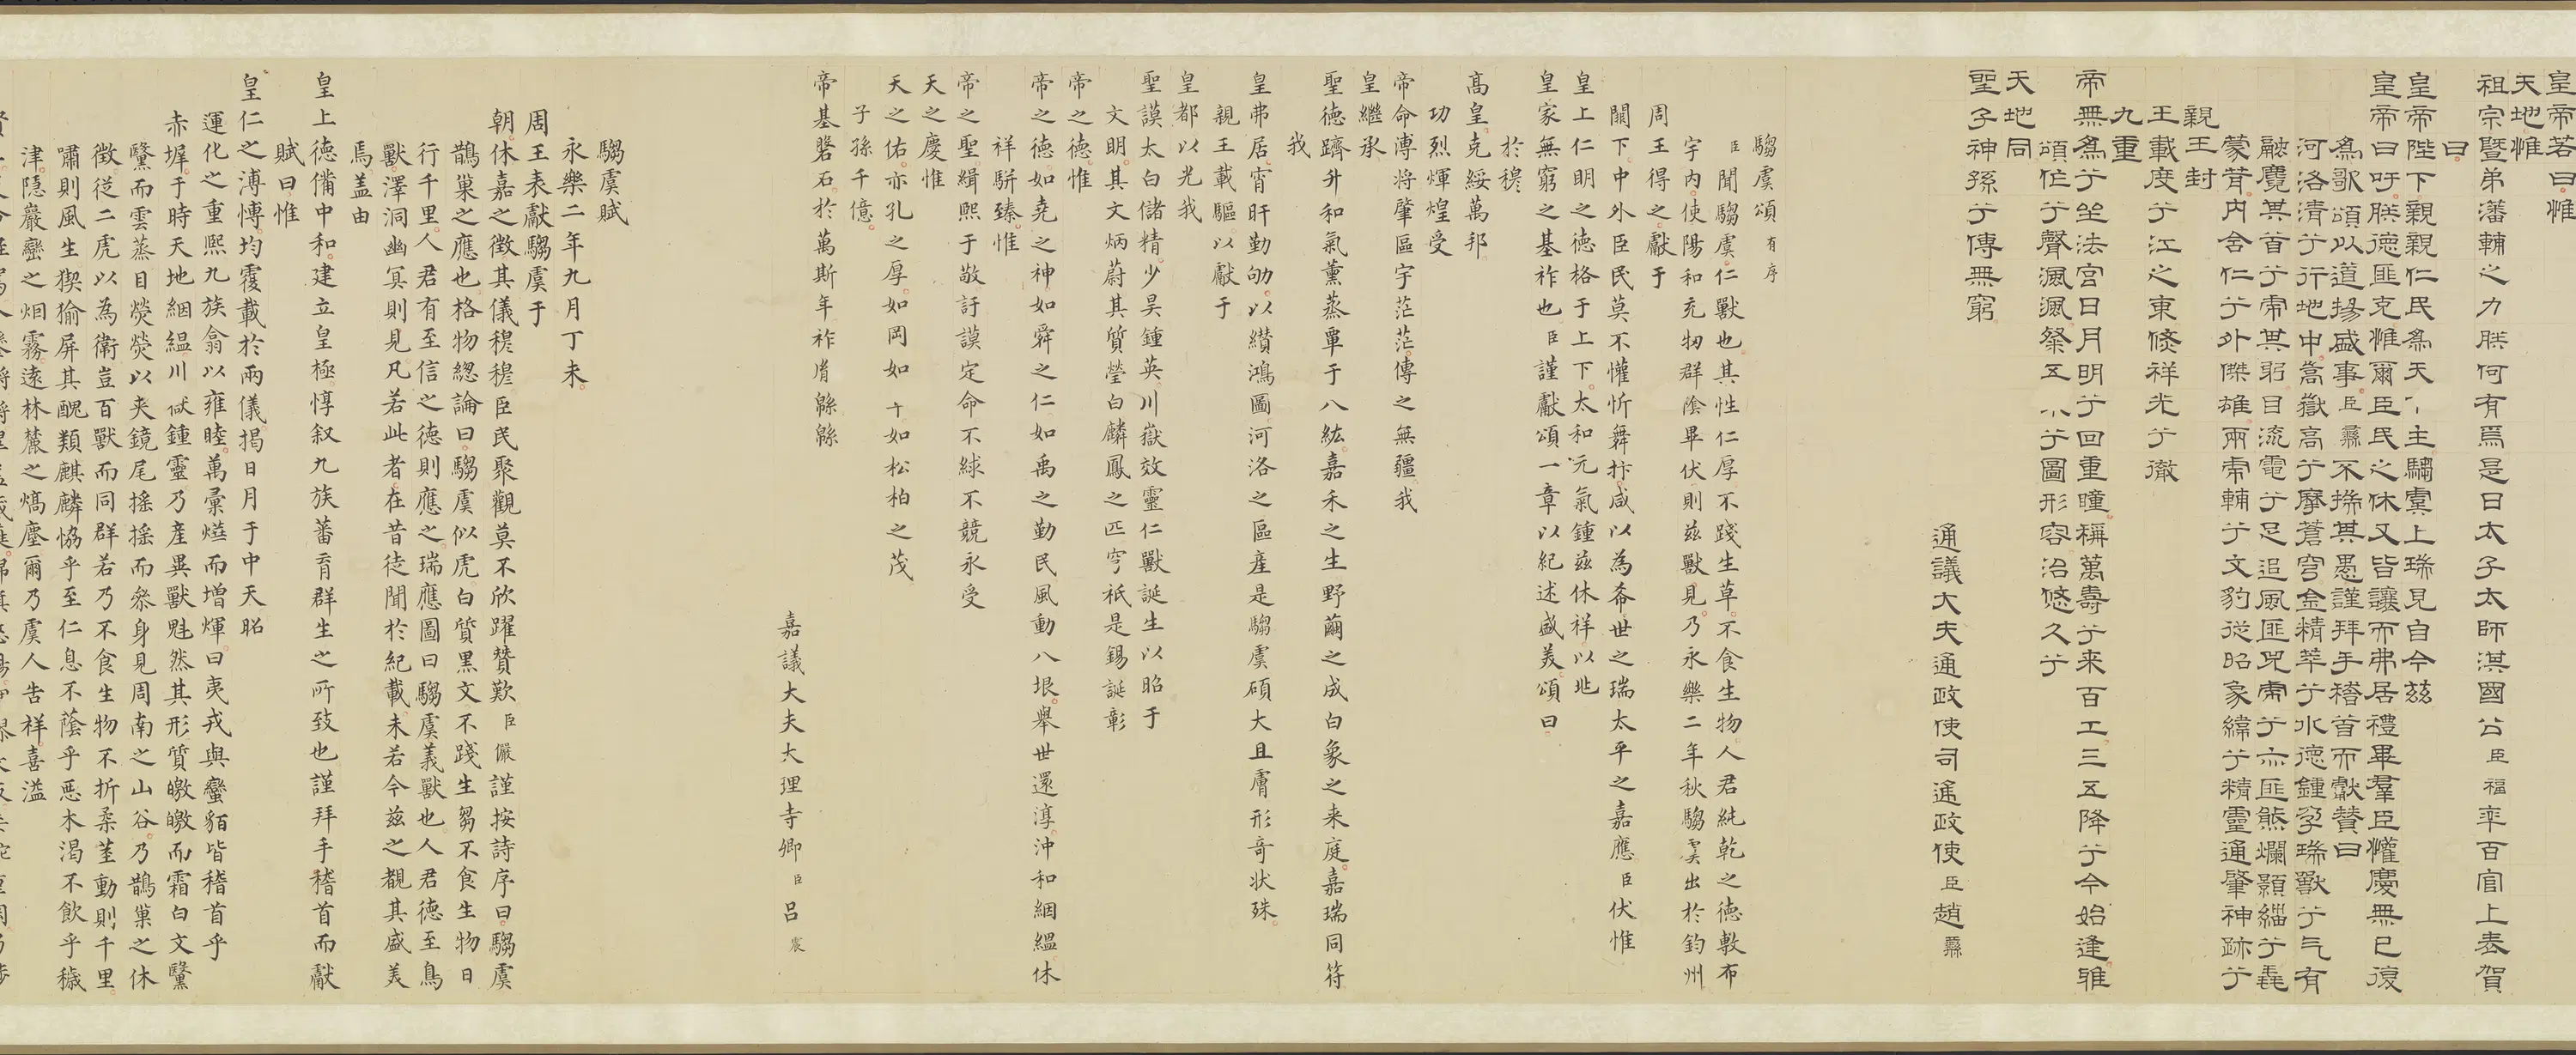 皇帝若曰惟
天地惟
祖宗暨弟藩輔之力朕何有焉是日太子太師淇國公臣福率百官上表賀
曰
皇帝陛下親親仁民為天下主騶虞上瑞見自今茲
皇帝曰吁朕德匪克惟爾臣民之休又皆讓而弗居禮畢羣臣懽慶無已復
為歌頌以道揚盛事臣彞不揣其愚謹拜手稽首而獻贊曰
河洛清兮行地中嵩嶽高兮摩蒼穹金精萃兮水德鍾孕瑞獸兮气有
融麑其首兮虎其躬目流電兮足追風匪兕虎兮亦匪熊爛顥緇兮毳
蒙茸內含仁兮外傑雄兩虎輔兮文豹從昭象緯兮精靈通肇神跡兮
親王封
王載度兮江之東倏祥光兮徹
九重
帝無為兮坐法宮日月明兮回重瞳稱萬壽兮来百工三五降兮今始逢雅
頌作兮聲渢渢粲五人兮圖形容沿悠久兮
天地同
聖子神孫兮傳無窮
通議大夫通政使司通政使臣趙彞
騶虞頌有序
臣聞騶虞仁獸也其性仁厚不踐生草不食生物人君純乾之德敷布
宇内使陽和充物群陰畢伏則茲獸見乃永樂二年秋騶虞出於鈞州
周王得之獻于
闕下中外臣民莫不懽忻舞抃咸以為希世之瑞太平之嘉應臣伏惟
皇上仁明之德格于上下太和元氣鍾茲休祥以兆
皇家無窮之基祚也臣謹獻頌一章以紀述盛美頌曰
於穆
髙皇克綏萬邦
功烈煇煌受
帝命溥将肇區宇茫茫傳之無疆我
皇繼承
聖德躋升和氣薰蒸覃于八紘嘉禾之生野繭之成白象之来庭嘉瑞同符
我
皇弗居宵旰勤劬以纘鴻圖河洛之區産是騶虞碩大且膚形奇狀殊
親王載驅以獻于
皇都以光我
聖謨太白儲精少昊鍾英川嶽效靈仁獸誕生以昭于
文明其文炳蔚其質瑩白麟鳳之匹穹祇是錫誕彰
帝之德惟
帝之德如堯之神如舜之仁如禹之勤民風動八垠舉世還淳沖和絪縕休
祥駢臻惟
帝之聖緝熙于敬訏謨定命不絿不競永受
天之慶惟
天之佑亦孔之厚如岡如阜如松柏之茂
子孫千億
帝基磐石於萬斯年祚胤緜緜
嘉議大夫大理寺卿臣呂震
騶虞賦
永樂二年九月丁未
周王表獻騶虞于
朝休嘉之徵其儀穆穆臣民聚觀莫不欣躍贊歎臣儼謹按詩序曰騶虞
鵲巢之應也格物緫論曰騶虞似虎白質黑文不踐生芻不食生物日
行千里人君有至信之德則應之瑞應圖曰騶虞義獸也人君德至鳥
獸澤洞幽冥則見凡若此者在昔徒聞於紀載未若今茲之覩其盛美
焉盖由
皇上德備中和建立皇極惇叙九族蕃育群生之所致也謹拜手稽首而獻
賦曰惟
皇仁之溥愽均覆載於兩儀揭日月于中天昭
運化之重熙九族翕以雍睦萬彙爕而增煇曰夷戎與蠻貊皆稽首乎
赤墀于時天地絪縕川嶽鍾靈乃産異獸魁然其形質皦皦而霜白文黳
黳而雲蒸目熒熒以夹鏡尾揺揺而叅身見周南之山谷乃鵲巢之休
徵從二虎以為衛豈百獸而同群若乃不食生物不折柔荎動則千里
嘯則風生猰㺄屏其醜類麒麟恊乎至仁息不蔭乎惡木渴不飲乎穢
津隱巖巒之烟霧逺林麓之熇塵爾乃虞人告祥喜溢